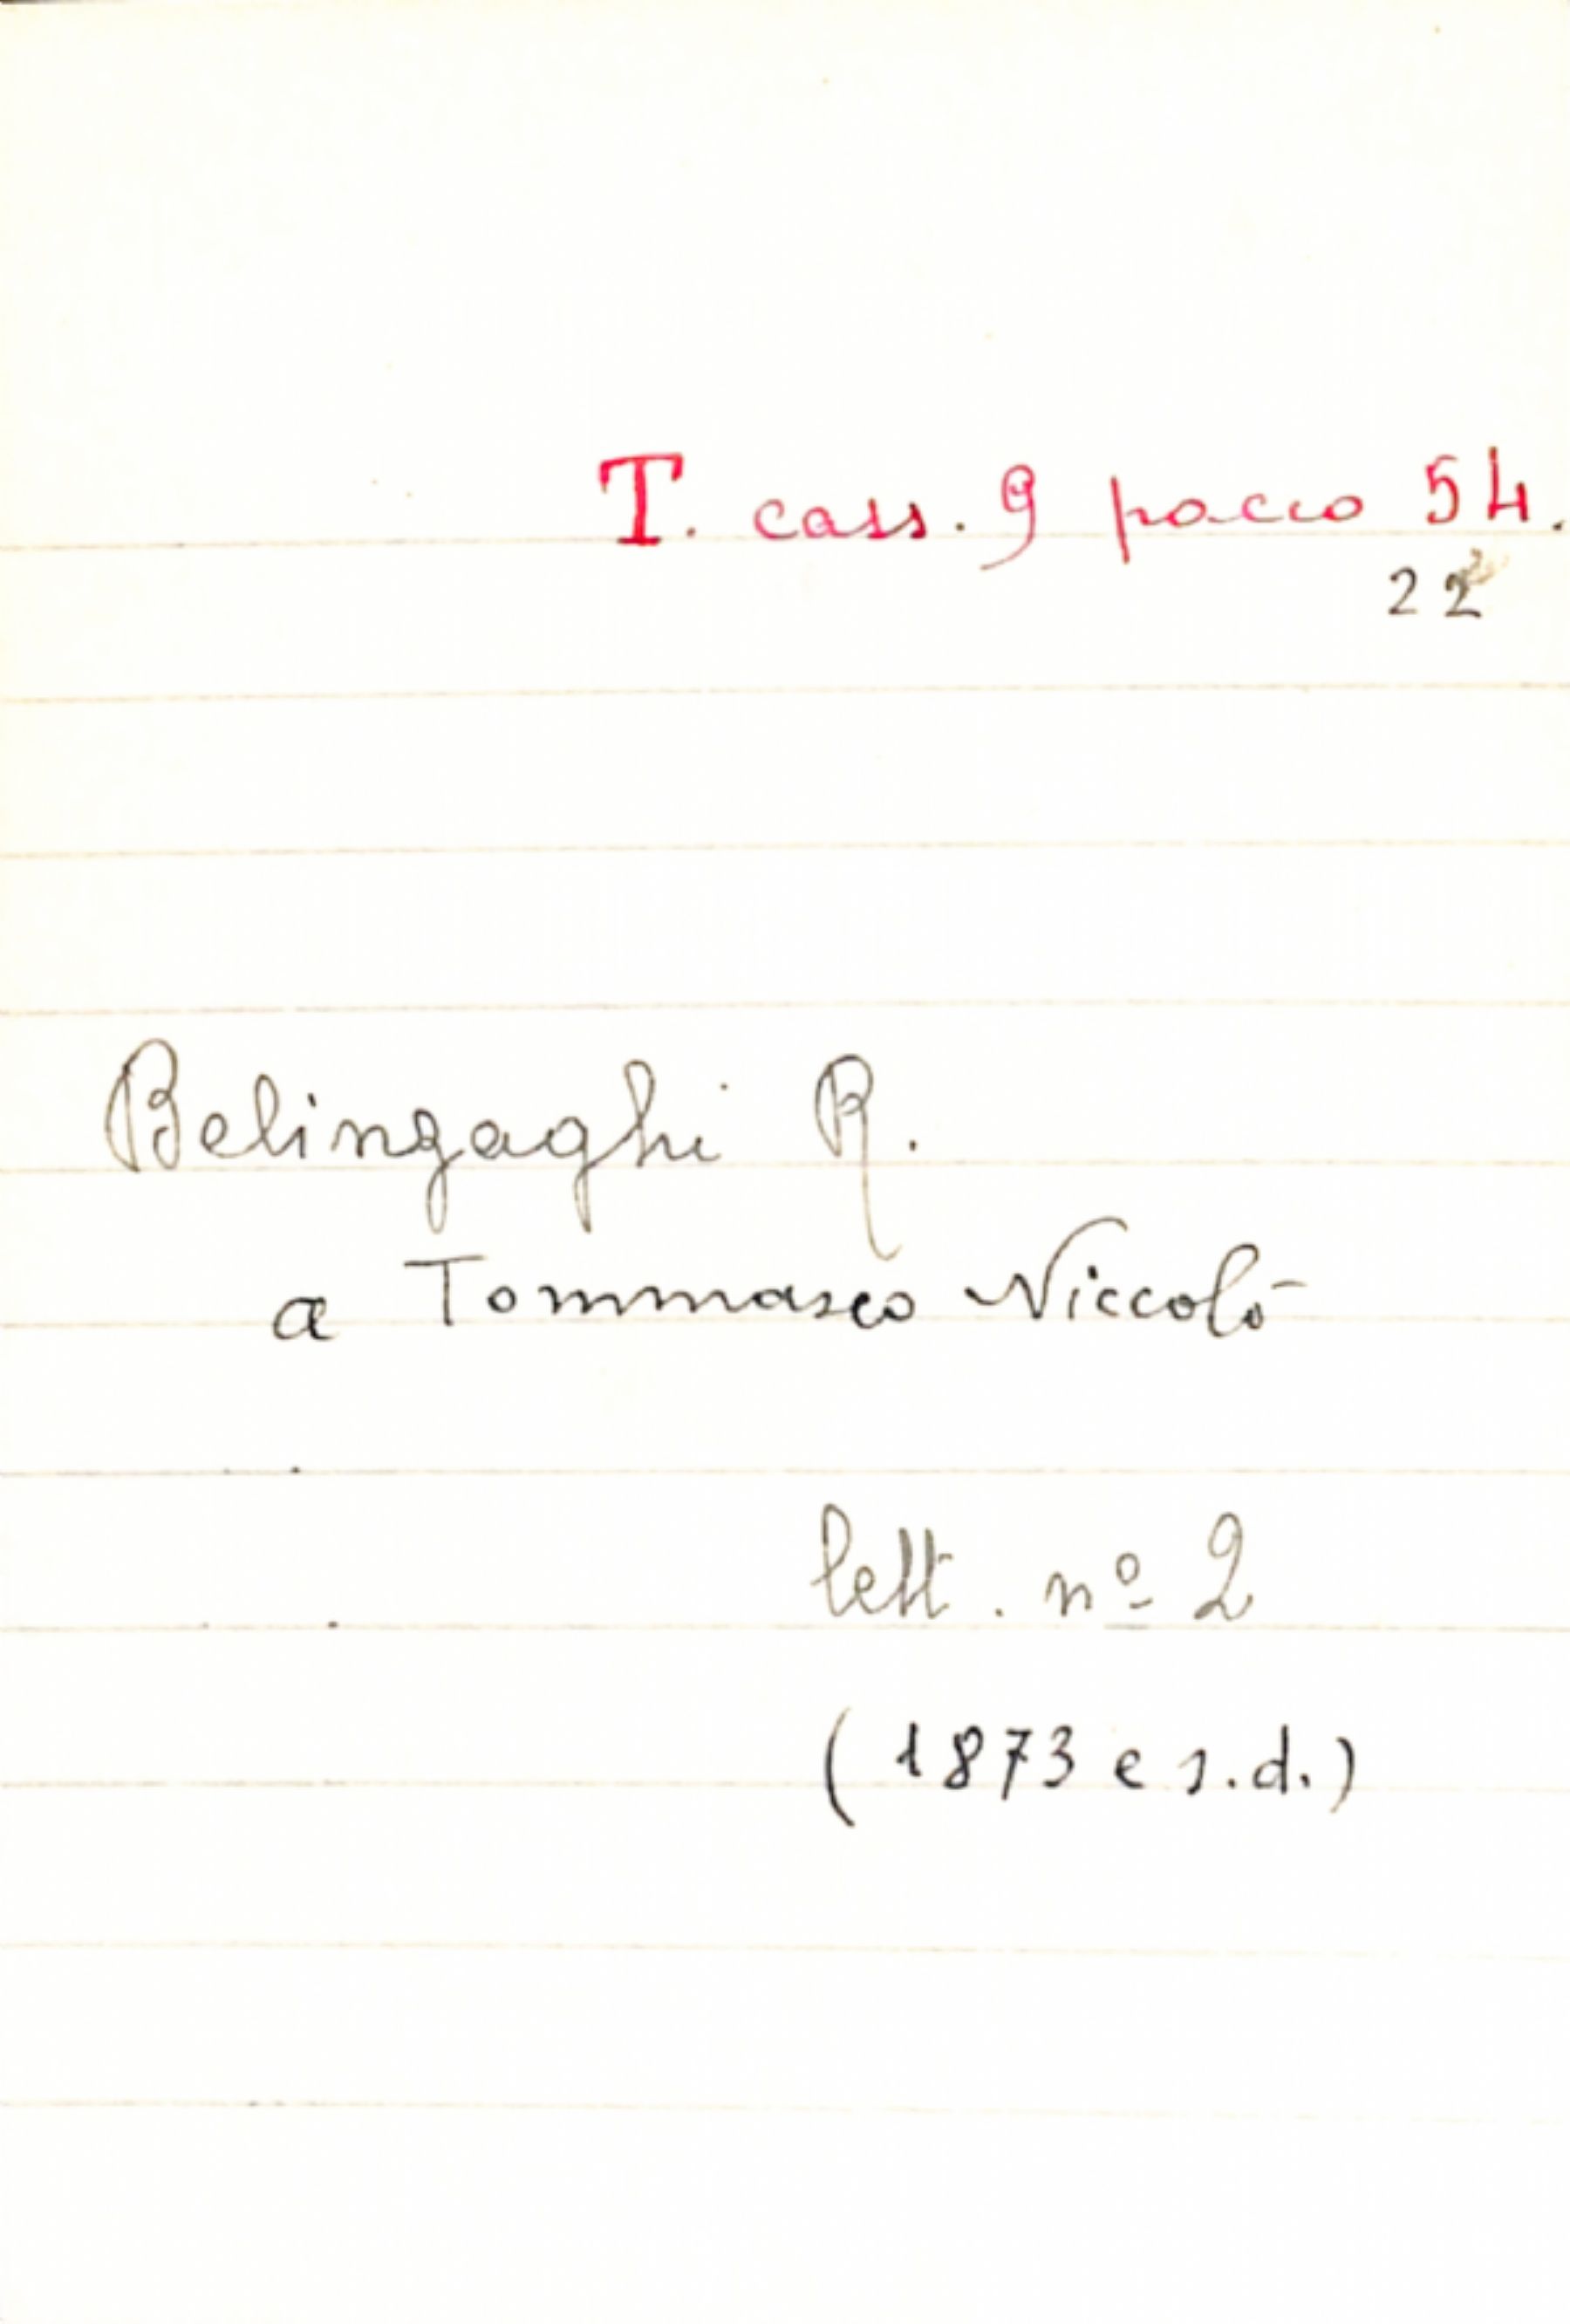 T. cass. 9 pacco 54.
22
Belinzaghi R.
a Tommaseo Niccolò
lett. nº 2
(1873 e s.d.)